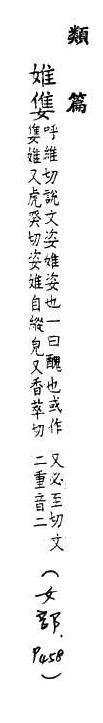 類篇
婎
呼維切說文姿婎姿也一曰醜也或作
婎又虎癸切姿婎自縱皃又香萃切
又必至切文
二重音二
(女部.P458)